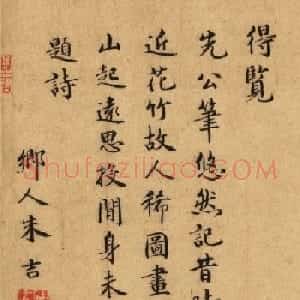 得覽
先公筆悠然記昔
近花竹故人稀圖畫
山起遠思投閒身未
題詩
鄉人朱吉
shufaziliao.com